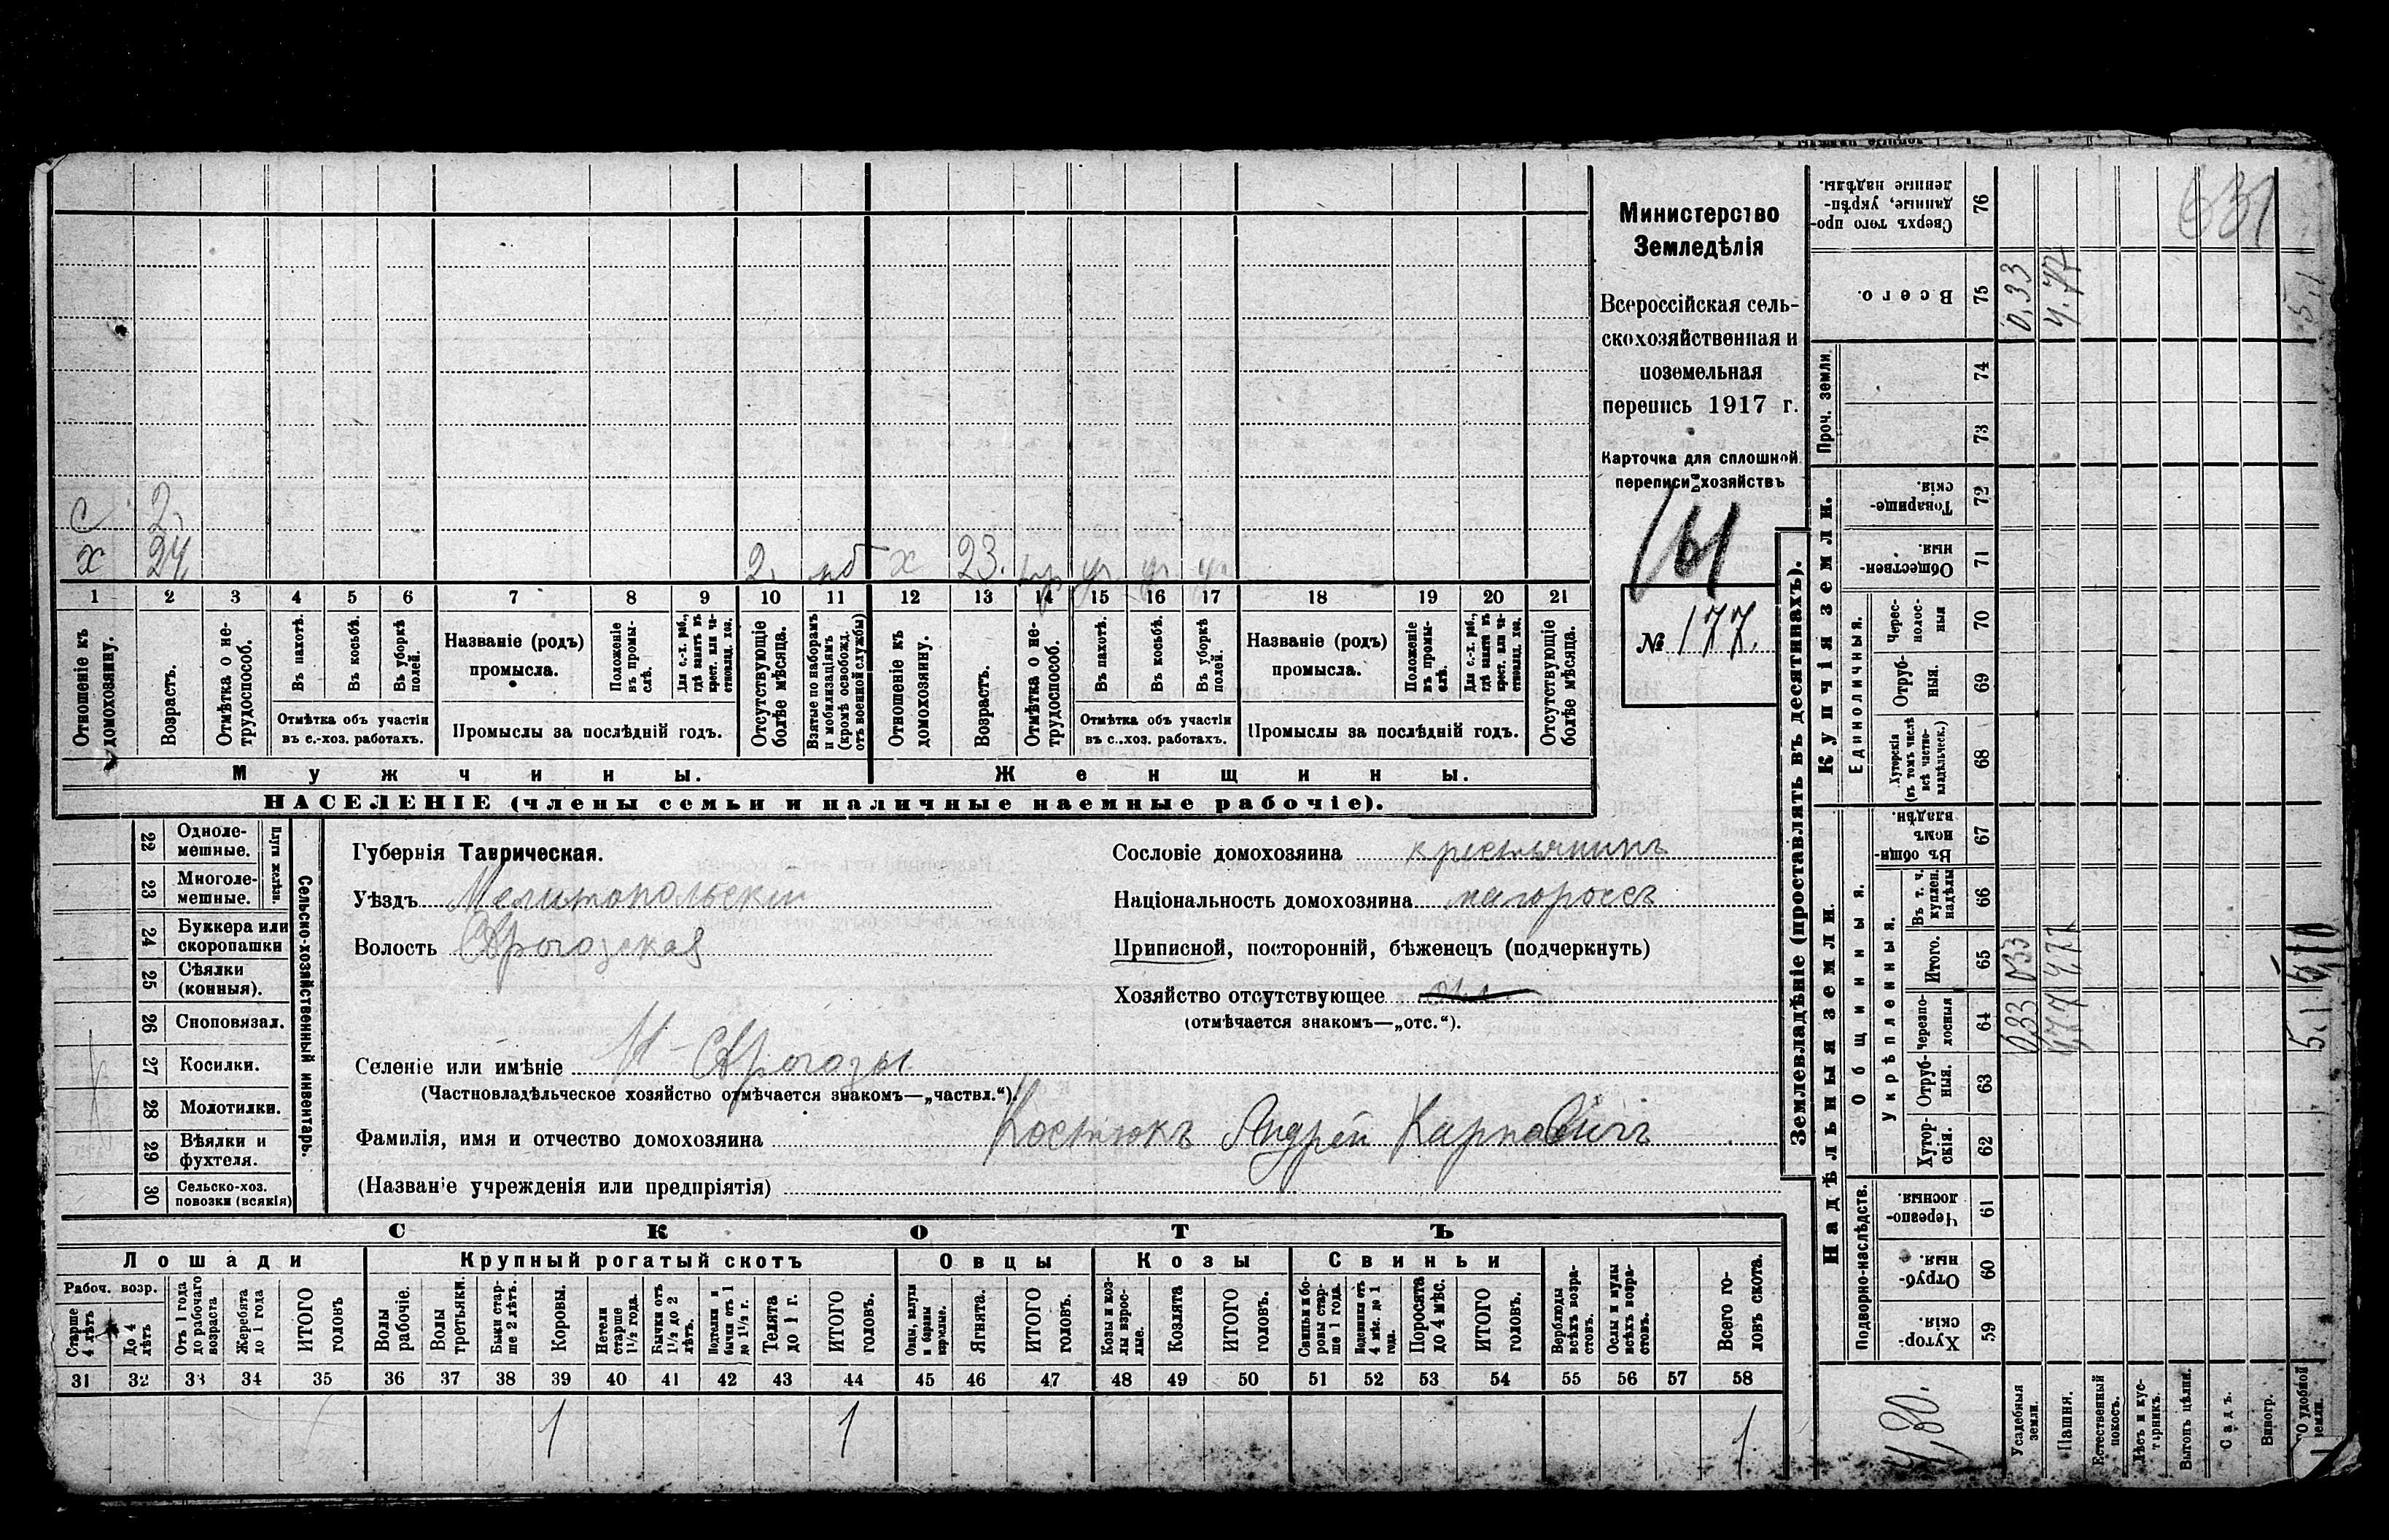 с 2
х 24 2 мб х 23. тр уч уч уч
1 2 3 4 5 6 7 8 9 10 11 12 13 14 15 16 17 18 19 20 21
Отношеніе къ домохозяину.
Возрастъ.
Отмѣтка о не-трудоспособ.
Въ пахотѣ.
Въ косьбѣ.
Въ уборкѣ полей.
Названіе (родъ) промысла.
Положеніе въ промы-слѣ.
Для с.-х. раб., гдѣ занятъ въ крест. или ча-стновлад. хоз.
Отсутствующіе болѣе мѣсяца.
Взятые по наборамъ и мобилизаціямъ (кромѣ освобожд. отъ военной службы)
Отношеніе къ домохозяину.
Возрастъ.
Отмѣтка о не-трудоспособ.
Въ пахотѣ.
Въ косьбѣ.
Въ уборкѣ полей.
Названіе (родъ) промысла.
Положеніе въ промы-слѣ.
Для с.-х. раб., гдѣ занятъ въ крест. или ча-стновлад. хоз.
Отсутствующіе болѣе мѣсяца.
Отмѣтка объ участіи въ с.-хоз. работахъ.
Промыслы за послѣдній годъ.
Отмѣтка объ участіи въ с.-хоз. работахъ.
Промыслы за послѣдній годъ.
Мужчины. Женщины.
НАСЕЛЕНІЕ (члены семьи и наличные наемные рабочіе).
Министерство
Земледѣлія
Всероссійская сель-
скохозяйственная и
поземельная
перепись 1917 г.
Карточка для сплошной
переписи хозяйствъ
№ 177.
22 Одноле-мешные.
23 Многоле-мешные.
Плуги желѣзн.
24 Буккера или скоропашки
25 Сѣялки (конныя).
26 Сноповязал.
27 Косилки.
28 Молотилки.
29 Вѣялки и фухтеля.
30 Сельско-хоз. повозки (всякія)
Сельско-хозяйственный инвентарь.
Губернія Таврическая.
Уѣздъ Мелитопольскій
Волость
Селеніе или имѣніе
(Частновладѣльческое хозяйство отмѣчается знакомъ—„частвл.“).
Фамилія, имя и отчество домохозяина Костюкъ Андрей Карповичъ
(Названіе учрежденія или предпріятія)
Сословіе домохозяина крестьянинъ
Національность домохозяина малороссъ
Приписной, посторонній, бѣженецъ (подчеркнуть)
Хозяйство отсутствующее
(отмѣчается знакомъ—„отс.“).
СКОТЪ
Лошади Крупный рогатый скотъ Овцы Козы Свиньи
Рабоч. возр.
Старше 4 лѣтъ
До 4 лѣтъ
Отъ 1 года до рабочаго возраста
Жеребята до 1 года
ИТОГО головъ
Волы рабочіе.
Волы третьяки.
Быки стар-ше 2 лѣтъ.
Коровы.
Нетели старше 1½ года.
Бычки отъ 1½ до 2 лѣтъ.
Подтелки и бычки отъ 1 до 1½ г.
Телята до 1 г.
ИТОГО головъ.
Овцы, валухи и бараны взрослые.
Ягнята.
ИТОГО головъ.
Козы и коз-лы взрос-лые.
Козлята
ИТОГО головъ.
Свиньи и бо-ровы стар-ше 1 года.
Подсвинки отъ 4 мѣс. до 1 года.
Поросята до 4 мѣс.
ИТОГО головъ.
Верблюды всѣхъ возра-стовъ.
Ослы и мулы всѣхъ возра-стовъ.
Всего го-ловъ скота.
31 32 33 34 35 36 37 38 39 40 41 42 43 44 45 46 47 48 49 50 51 52 53 54 55 56 57 58
1 1 1
Землевладѣніе (проставлять въ десятинахъ).
Надѣльныя земли. Купчія земли. Проч. земли.
Подворно-наслѣдств. Общинныя. Единоличныя.
Укрѣпленныя.
Хутор-скія. 59
Отруб-ныя. 60
Черезпо-лосныя. 61
Хутор-скія. 62
Отруб-ныя. 63
Черезпо-лосныя 64
Итого. 65
Въ т. ч. куплен. надѣлы 66
Въ общи-номъ владѣн. 67
Хуторскія (въ томъ числѣ всѣ частно-владѣльческ.) 68
Отруб-ныя. 69
Черес-полос-ныя 70
Обществен-ныя. 71
Товарище-скія. 72
73
74
Всего. 75
Сверхъ того про-данные, укрѣп-ленные надѣлы. 76
4,80.
Усадебныя земли. 0,33 0,33 0,33
Пашня. 4,77 4,77 4,77
Естественный покосъ.
Лѣсъ и кус-тарникъ.
Выгонъ цѣлин.
Садъ.
Виногр.
631